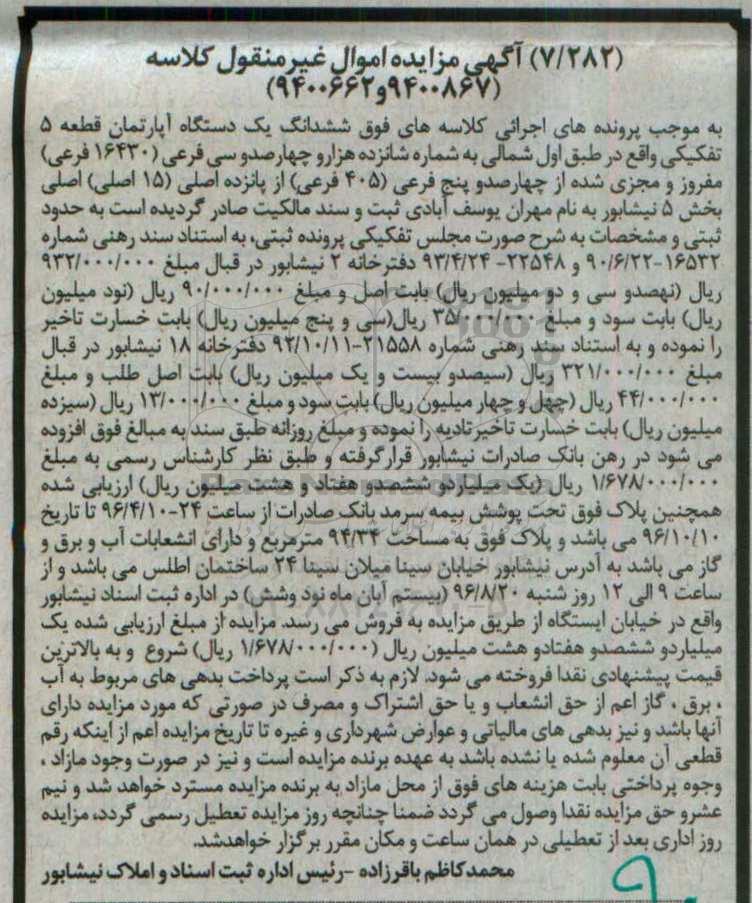 (۷/۲۸۲) آگهی مزایده اموال غیرمنقول کلاسه
(۹۴۰۰۸۶۷و۹۴۰۰۶۶۲)
به موجب پرونده های اجرائی کلاسه های فوق ششدانگ یک دستگاه آپارتمان قطعه ۵
تفکیکی واقع در طبق اول شمالی به شماره شانزده هزارو چهارصدو سی فرعی (۱۶۴۳۰ فرعی)
مفروز و مجزی شده از چهارصدو پنج فرعی (۴۰۵ فرعی) از پانزده اصلی (۱۵ اصلی) اصلی
بخش ۵ نیشابور به نام مهران یوسف آبادی ثبت و سند مالکیت صادر گردیده است به حدود
ثبتی و مشخصات به شرح صورت مجلس تفکیکی پرونده ثبتی، به استناد سند رهنی شماره
۱۶۵۳۲-۹۰/۶/۲۲ و ۲۲۵۴۸- ۹۳/۴/۲۴ دفترخانه ۲ نیشابور در قبال مبلغ ۹۳۲/۰۰۰/۰۰۰
ریال (نهصدو سی و دو میلیون ریال) بابت اصل و مبلغ ۹۰/۰۰۰/۰۰۰ ریال (نود میلیون
ریال) بابت سود و مبلغ ۳۵/۰۰۰/۰۰۰ ریال(سی و پنج میلیون ریال) بابت خسارت تاخیر
را نموده و به استناد سند رهنی شماره ۲۱۵۵۸-۹۲/۱۰/۱۱ دفترخانه ۱۸ نیشابور در قبال
مبلغ ۳۲۱/۰۰۰/۰۰۰ ریال (سیصدو بیست و یک میلیون ریال) بابت اصل طلب و مبلغ
۴۴/۰۰۰/۰۰۰ ریال (چهل و چهار میلیون ریال) بابت سود و مبلغ ۱۳/۰۰۰/۰۰۰ ریال (سیزده
میلیون ریال) بابت خسارت تاخیرتادیه را نموده و مبلغ روزانه طبق سند به مبالغ فوق افزوده
می شود در رهن بانک صادرات نیشابور قرارگرفته و طبق نظر کارشناس رسمی به مبلغ
۱/۶۷۸/۰۰۰/۰۰۰ ریال (یک میلیاردو ششصدو هفتاد و هشت میلیون ریال) ارزیابی شده
همچنین پلاک فوق تحت پوشش بیمه سرمد بانک صادرات از ساعت ۲۴-۹۶/۴/۱۰ تا تاریخ
۹۶/۱۰/۱۰ می باشد و پلاک فوق به مساحت ۹۴/۳۴ مترمربع و دارای انشعابات آب و برق و
گاز می باشد به آدرس نیشابور خیابان سینا میلان سینا ۲۴ ساختمان اطلس می باشد و از
ساعت ۹ الی ۱۲ روز شنبه ۹۶/۸/۲۰ (بیستم آبان ماه نود وشش) در اداره ثبت اسناد نیشابور
واقع در خیابان ایستگاه از طریق مزایده به فروش می رسد. مزایده از مبلغ ارزیابی شده یک
میلیاردو ششصدو هفتادو هشت میلیون ریال (۱/۶۷۸/۰۰۰/۰۰۰ ریال) شروع و به بالاترین
قیمت پیشنهادی نقدا فروخته می شود. لازم به ذکر است پرداخت بدهی های مربوط به آب
، برق ، گاز اعم از حق انشعاب و یا حق اشتراک و مصرف در صورتی که مورد مزایده دارای
آنها باشد و نیز بدهی های مالیاتی و عوارض شهرداری و غیره تا تاریخ مزایده اعم از اینکه رقم
قطعی آن معلوم شده یا نشده باشد به عهده برنده مزایده است و نیز در صورت وجود مازاد ،
وجوه پرداختی بابت هزینه های فوق از محل مازاد به برنده مزایده مسترد خواهد شد و نیم
عشرو حق مزایده نقدا وصول می گردد ضمنا چنانچه روز مزایده تعطیل رسمی گردد، مزایده
روز اداری بعد از تعطیلی در همان ساعت و مکان مقرر برگزار خواهدشد.
محمدکاظم باقرزاده -رئیس اداره ثبت اسناد و املاک نیشابور